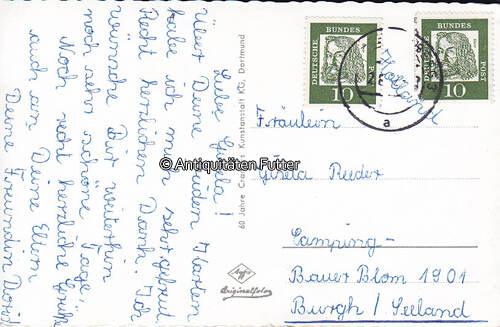 Liebe Gisela!
Über Deine beiden Karten
habe ich mich sehr gefreut
Recht herzlichen Dank. Ich
wünsche Dir weiterhin
noch sehr schöne Tage.
Noch recht herzliche Grüße
auch an Deine Eltern
Deine Freundin Doris
60 Jahre Kunstanstalt KG, Dortmund
© Antiquitäten Futter
DEUTSCHE
BUNDES
POST
10
DEUTSCHE
BUNDES
POST
10
a
Holland
Fräulein
Gisela Reeder
Camping-
Bauer Blom 1901
Burgh / Seeland
Agfa
Originalfoto